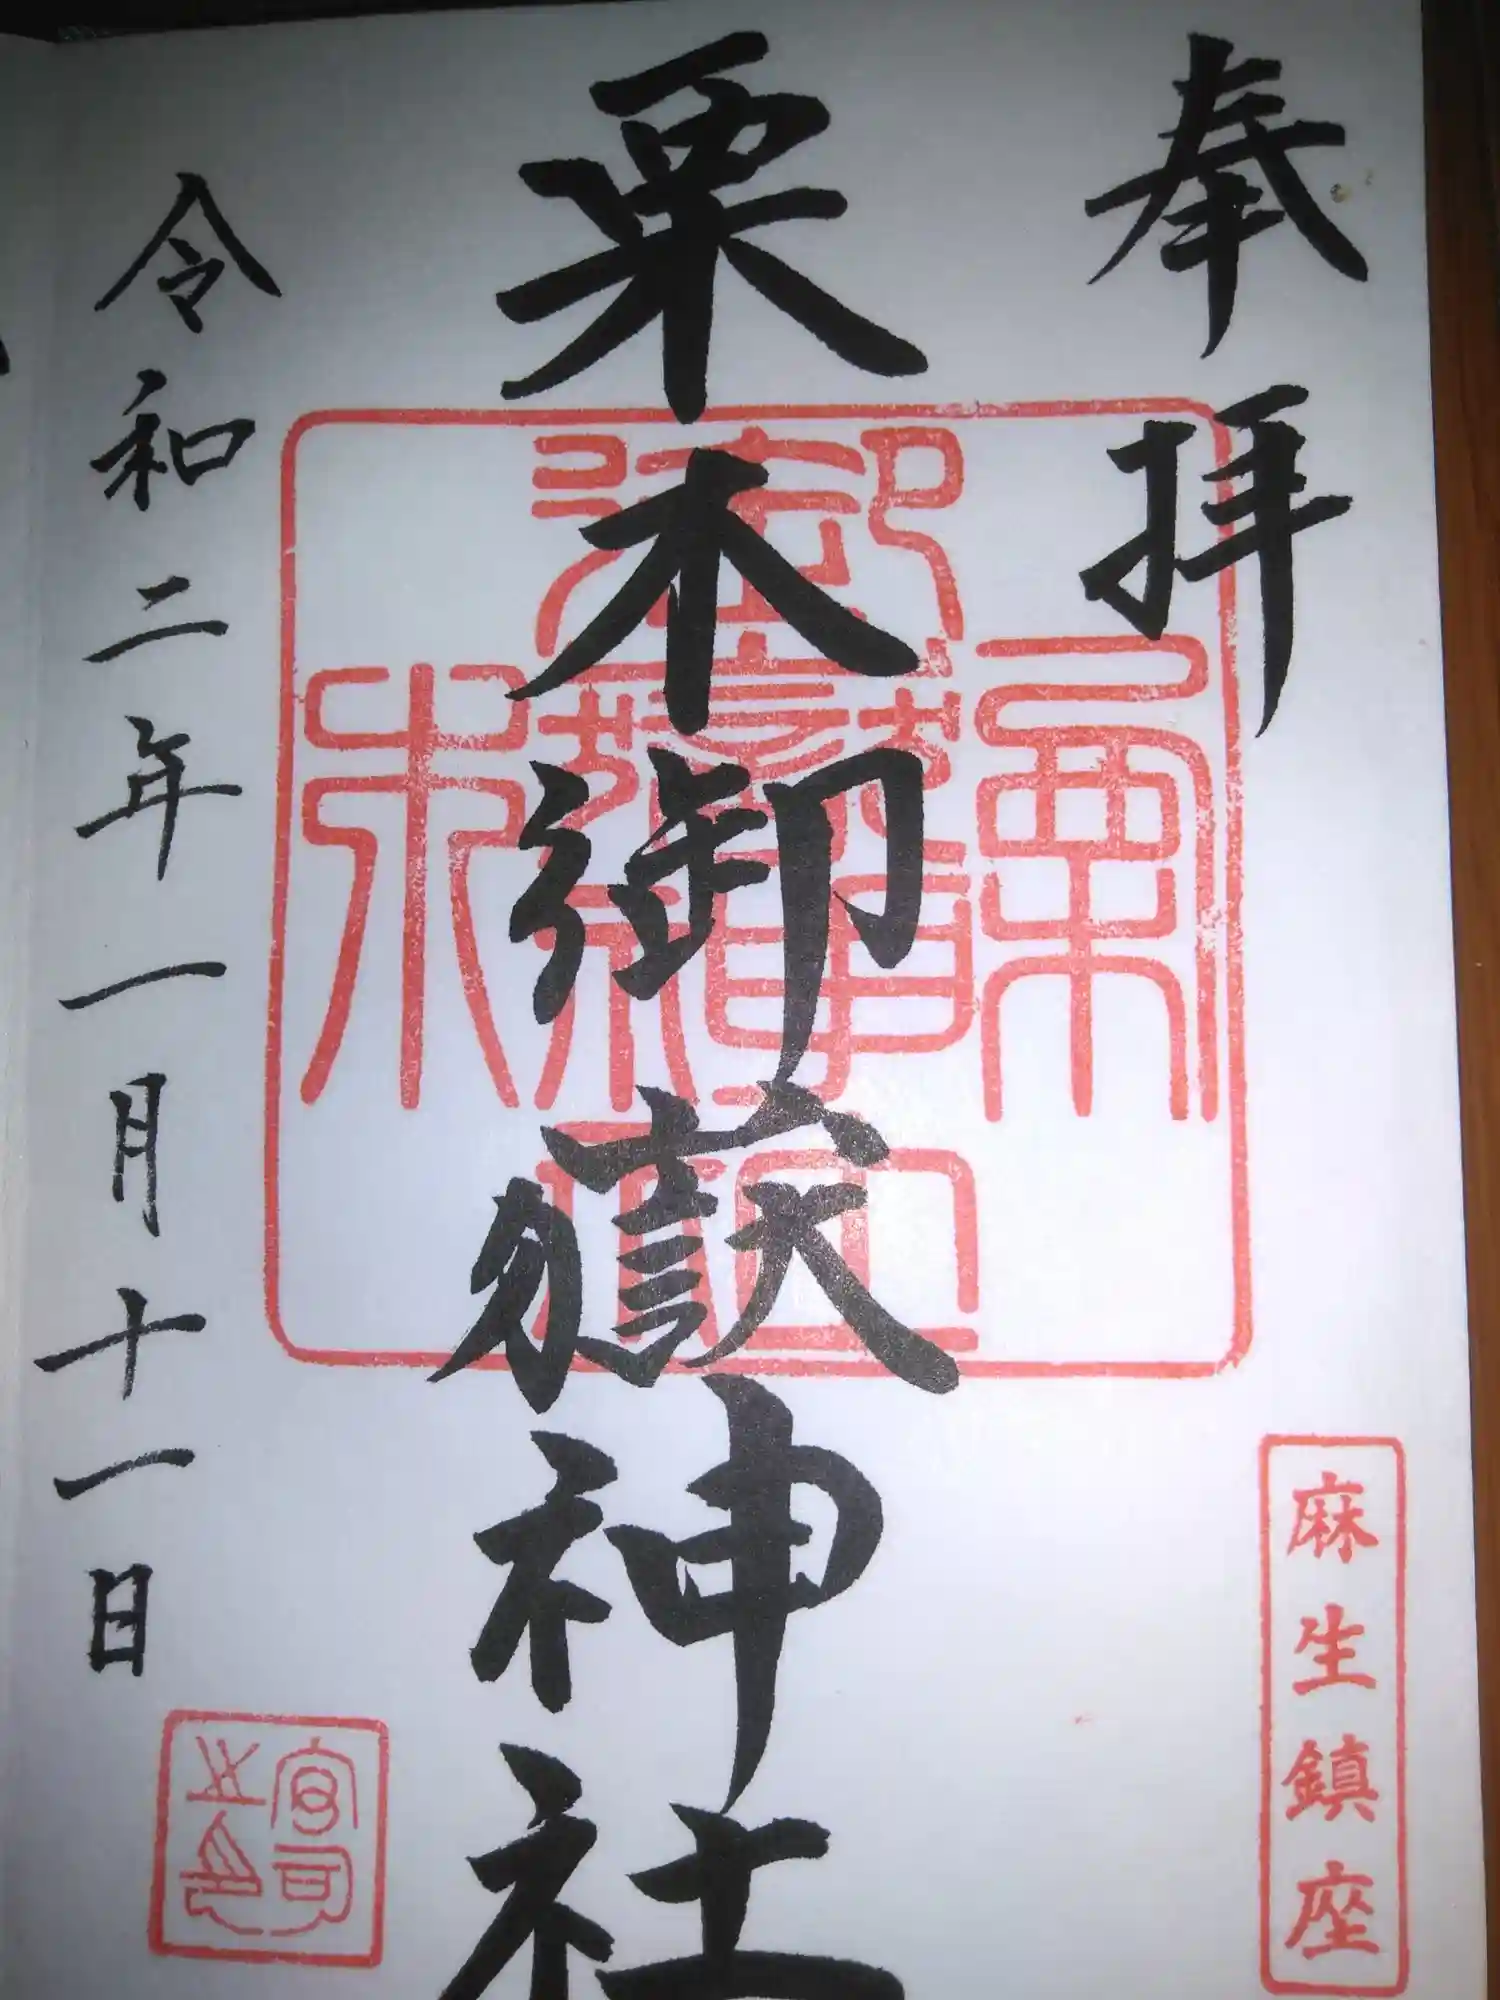 奉拝
麻生鎮座
栗木御嶽神社
栗木御嶽神社
令和二年一月十一日
宮司之印